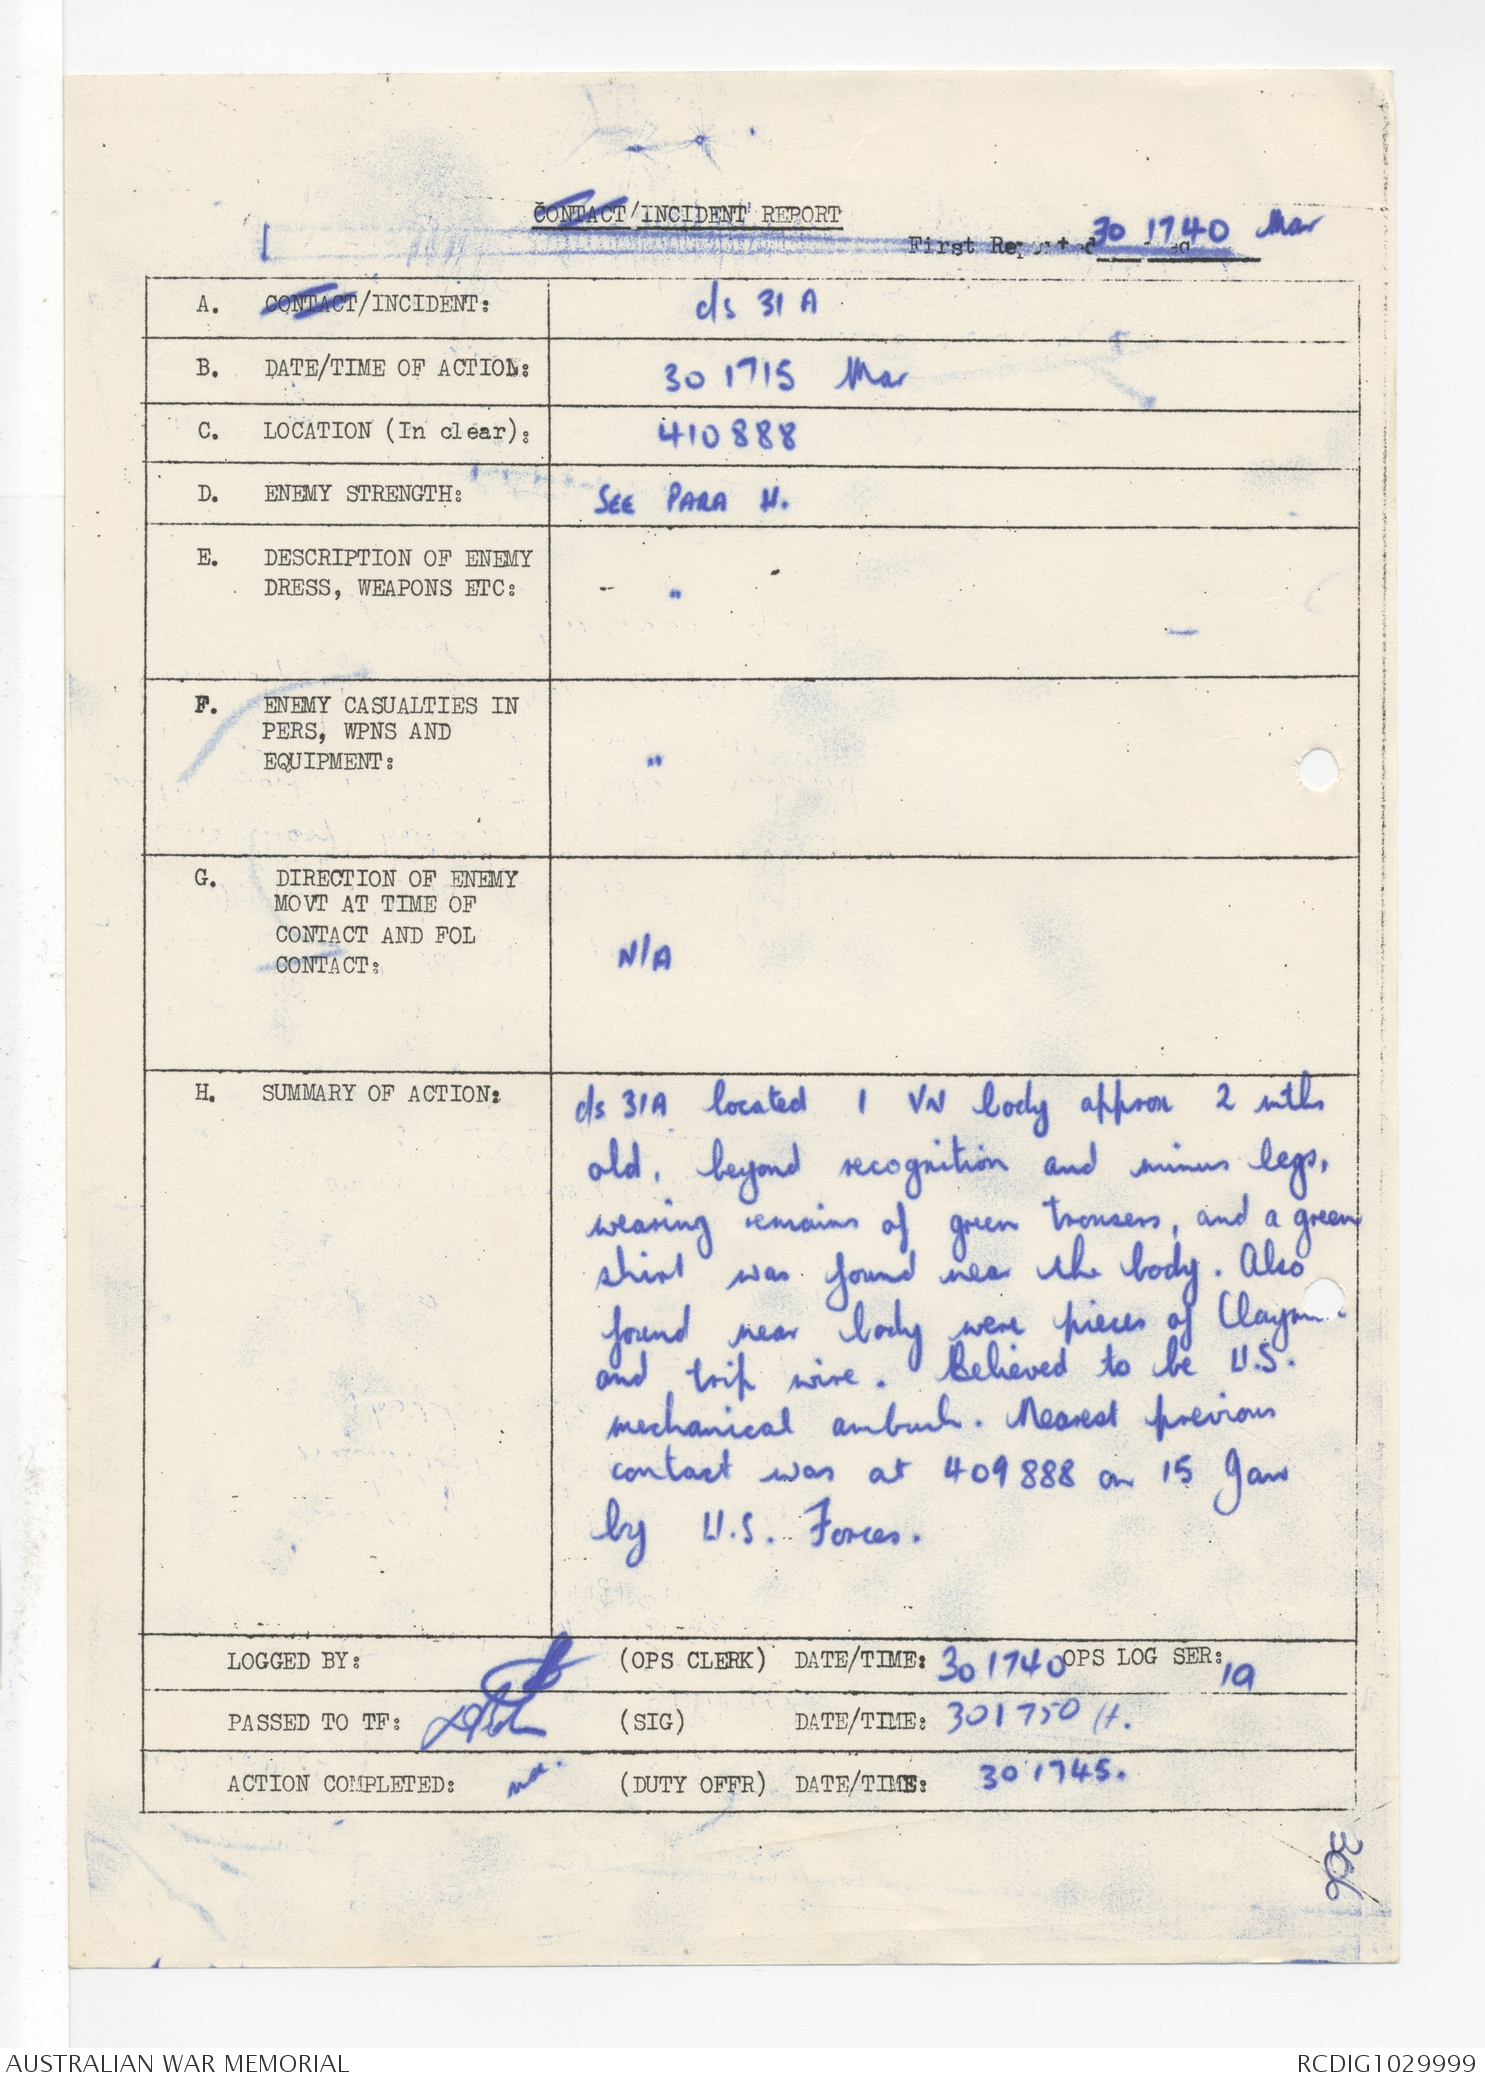 CONTACT/INCIDENT REPORT
First Reported 30 1740 Mar
A. CONTACT/INCIDENT: c/s 31A
B. DATE/TIME OF ACTION: 30 1715 Mar
C. LOCATION (In clear): 410888
D. ENEMY STRENGTH: SEE PARA H.
E. DESCRIPTION OF ENEMY
DRESS, WEAPONS ETC: - " -
F. ENEMY CASUALTIES IN
PERS, WPNS AND
EQUIPMENT: "
G. DIRECTION OF ENEMY
MOVT AT TIME OF
CONTACT AND FOL
CONTACT: N/A
H. SUMMARY OF ACTION: c/s 31A located 1 VN body approx 2 mths
old, beyond recognition and minus legs,
wearing remains of green trousers, and a green
shirt was found near the body. Also
found near body were pieces of
and trip wire. Believed to be U.S.
mechanical ambush. Nearest previous
contact was at 409888 on 15 Jan
by U.S. Forces.
LOGGED BY: (OPS CLERK) DATE/TIME: 301740 OPS LOG SER: 19
PASSED TO TF: (SIG) DATE/TIME: 301750 H.
ACTION COMPLETED: (DUTY OFFR) DATE/TIME: 301745.
366
AUSTRALIAN WAR MEMORIAL
RCDIG1029999